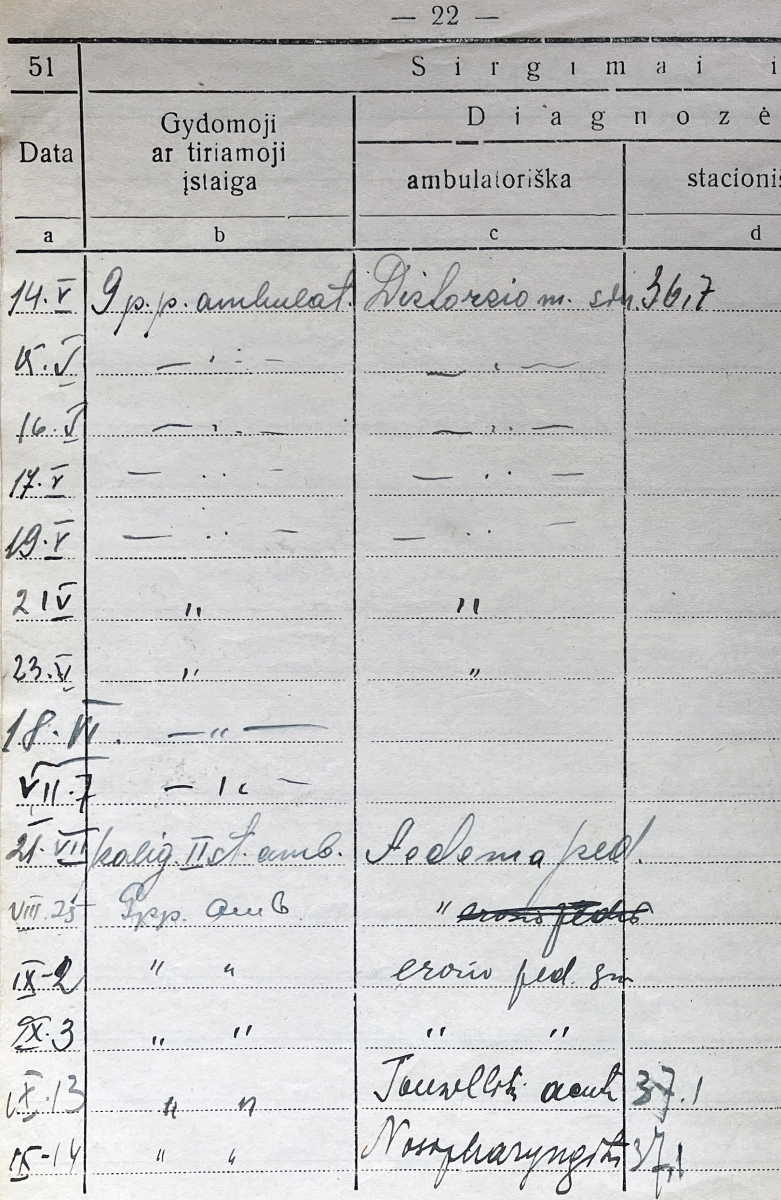 — 22 —
51 Sirgimai i
Diagnozė
Data Gydomoji ar tiriamoji įstaiga ambulatoriška stacioniš
a b c d
14.V 9 p.p. ambulat. Distorsio m. sin. 36,7
15.V — „ — — „ —
16.V — „ — — „ —
17.V — „ — — „ —
19.V — „ — — „ —
21 V „ „
23.V „ „
18.VI. — „ —
VII.7 — „ —
21.VII II st. amb. Aedema ped.
VIII.25 9 pp. amb „
IX-2 „ „ ped. sin
IX.3 „ „ „ „
IX.13 „ „ Tonsillit. acuta 37.1
IX-14 „ „ Nasopharyngitis 37,1